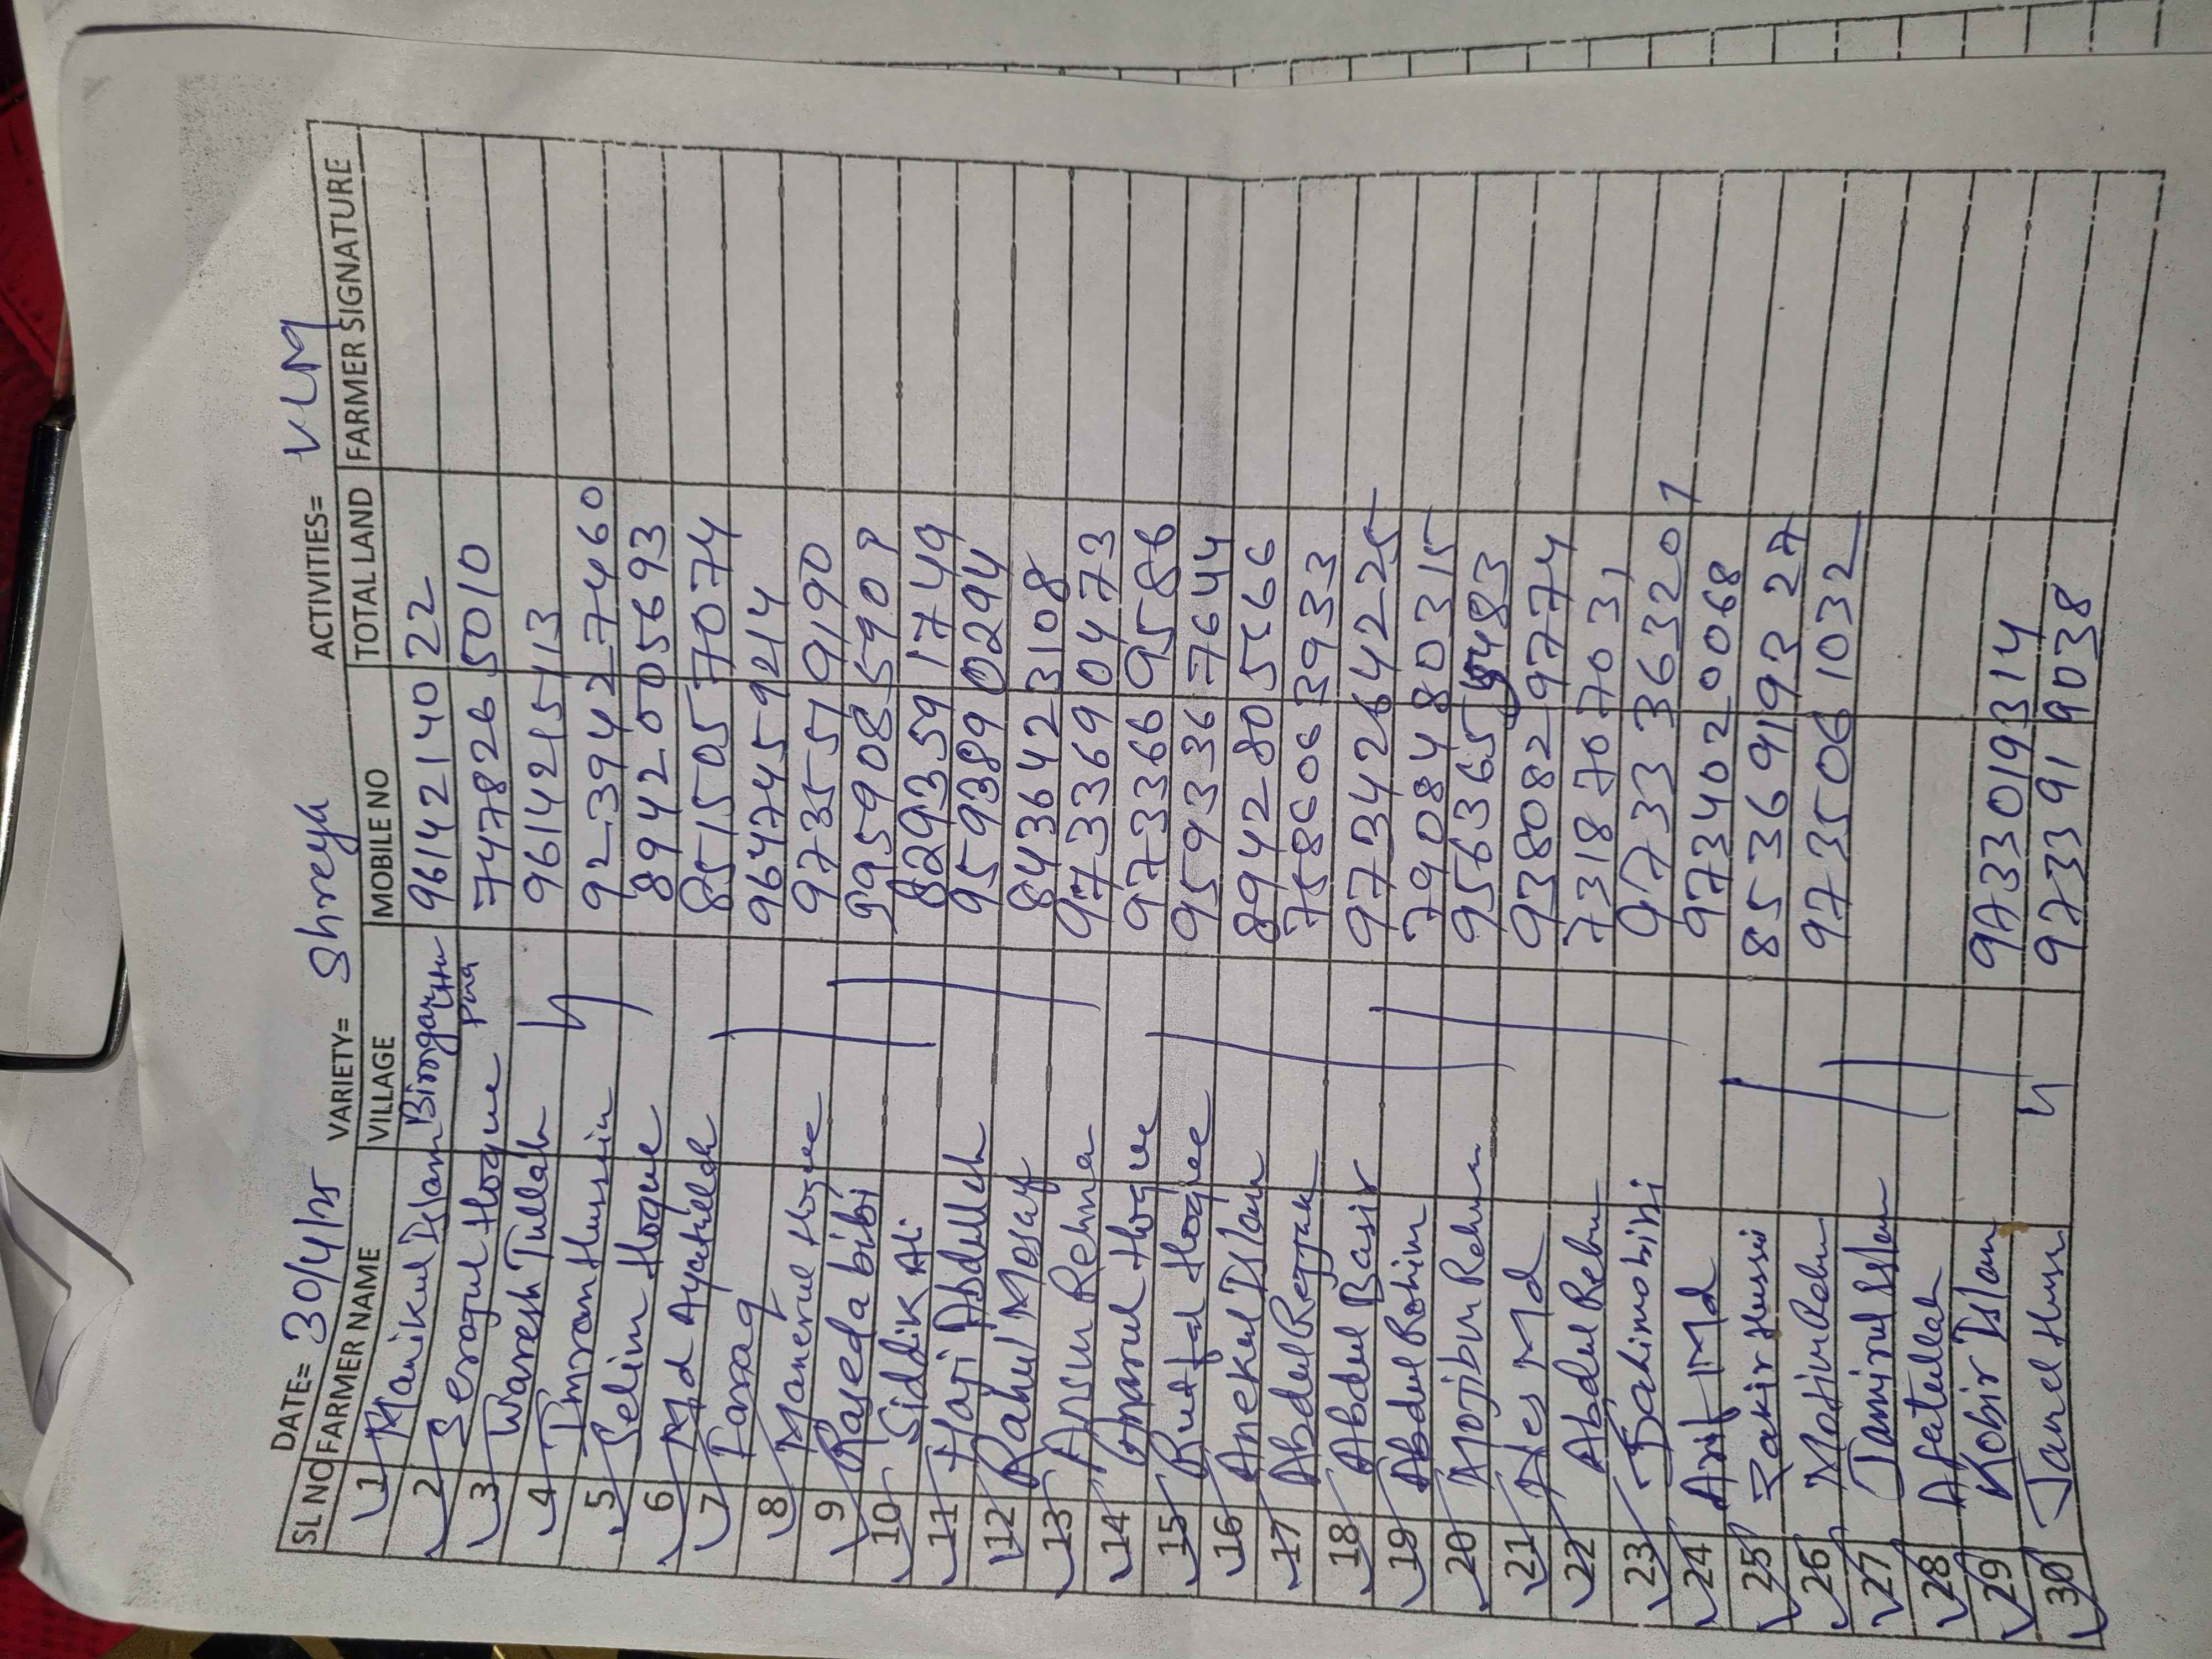 DATE= 30/4/25 VARIETY= Shreya ACTIVITIES= VLM
SL NO FARMER NAME VILLAGE MOBILE NO TOTAL LAND FARMER SIGNATURE
1 Manikul Islam 9614214022
2 Serajul Hoque Para 7478265010
3 Waresh Tullah 9614215113
4 Imran Hussin 9239427 4460
5 Selim Hoque 8942005693
6 Md Ayatullah 8515057074
7 9647459214
8 Manerul Hoque 9735519190
9 Rayeda bibi 9959085909
10 Siddik Ali 8293591749
11 Haji Abdullah 9593890294
12 Rahul Mosay 8436423108
13 Ansur Rehma 9733690473
14 Hoque 9733669586
15 Hoque 9593367644
16 Anekul Islam 8942805566
17 Abdul Rejjak 7586063933
18 Abdul Basir 9734264225
19 Abdul Rohim 7908480315
20 Mojibur Rehm 9563655483
21 Md 9380829774
22 Abdul Rehm 7318707031
23 9733363201
24 Arif Md 9734020068
25 Zakir Hussi 8536919327
26 Motiur Rehm 9735061032
27 Tamirul Islam
28 Afatullah
29 Kobir Islam 9733019314
30 9733919038